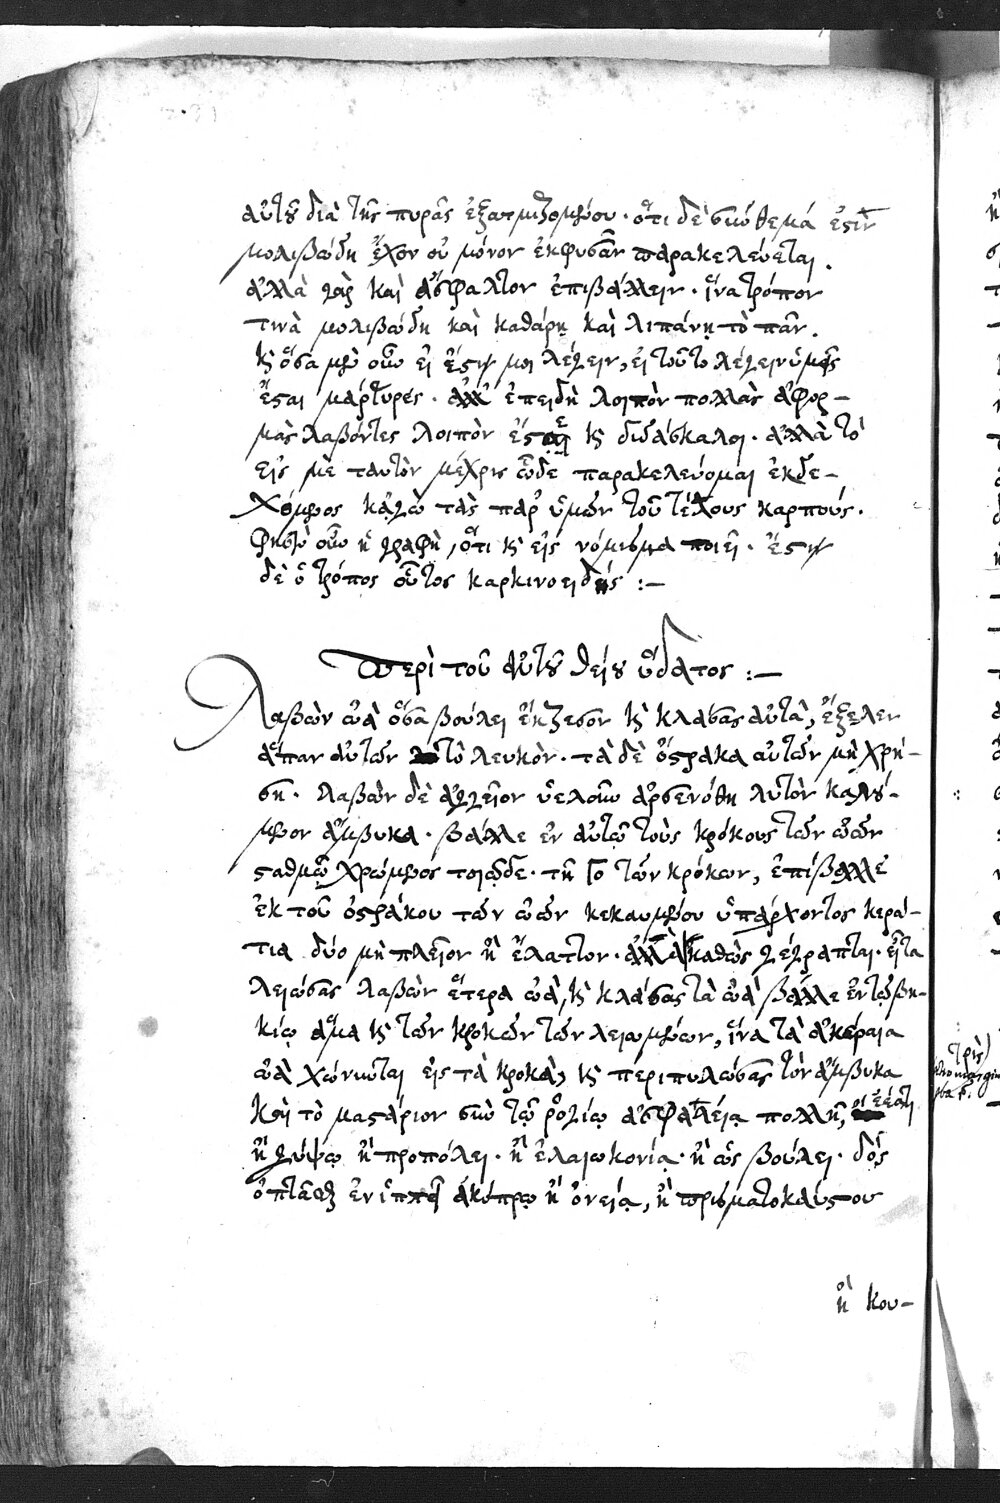 αὐτοῦ διὰ τῆς πυρᾶς ἐξατμιζομένου· ὅτι δὲ σύνθεμά ἐστιν
μολιβώδη ἔχον οὐ μόνον ἐκφυσᾶν παρακελεύεται.
ἀλλὰ γὰρ καὶ ἄσφαλτον ἐπιβάλλειν· ἵνα τρόπον
τινὰ μολιβώδη καὶ καθάρῃ καὶ λιπάνῃ τὸ πᾶν.
καὶ ὅσα μὲν οὖν εἰ ἔστιν μοι λέγειν, εἰ τοῦτο λέγειν ὑμᾶς
ἔσται μάρτυρές· ἀλλ' ἐπειδὴ λοιπὸν πολλὰς ἀφορ-
μὰς λαβόντες λοιπὸν ἐστὲ καὶ διδάσκαλοι· ἀλλὰ τὸ
εἰς με ταυτὸν μέχρις ὧδε παρακελεύομαι ἐκδε-
χόμενος κἀγὼ τὰς παρ' ὑμῶν τοῦ τέλους καρπούς.
φησὶν οὖν ἡ γραφὴ, ὅτι καὶ εἰς νόμισμα ποιεῖ· ἔστιν
δὲ ὁ τρόπος οὗτος καρκινοειδής :—
Περὶ τοῦ αὐτοῦ θείου ὕδατος :—
Λαβὼν ὠὰ ὅσα βούλει ἔκζεσον καὶ κλάσας αὐτὰ, ἔξελεν
ἅπαν αὐτῶν τὸ λευκὸν· τὰ δὲ ὄστρακα αὐτῶν μὴ χρή-
σῃ. λαβὼν δὲ ἀγγεῖον ὑελοῦν ἀρσενόθη λυτὸν καλού-
μενον ἄμβυκα· βάλλε ἐν αὐτῷ τοὺς κρόκους τῶν ὠῶν
σταθμῷ χρώμενος τοιῷδε· τῇ Γο τῶν κρόκων, ἐπίβαλλε
ἐκ τοῦ ὀστράκου τῶν ὠῶν κεκαυμένου ὑπάρχοντος κερά-
τια δύο μὴ πλεῖον ἢ ἔλαττον· ἀλλὰ καθὼς γέγραπται· εἶτα
λειώσας λαβὼν ἕτερα ὠὰ, καὶ κλάσας τὰ ὠὰ βάλλε ἐν τῷ βη-
κίῳ ἅμα καὶ τῶν κροκῶν τῶν λειωμένων, ἵνα τὰ ἀκέραια
ὠὰ χώνωται εἰς τὰ κροκὰ, καὶ περιπυλώσας τὸν ἄμβυκα
καὶ τὸ μαστάριον σὺν τῷ ῥογίῳ ἀσφαλείᾳ πολλῇ,
ἢ γύψῳ ἢ προπόλει· ἢ ἐλαιωκονίᾳ· ἢ ὡς βούλει· δὸς
ὀπτᾶσθαι ἐν ἱππείᾳ κόπρῳ ἢ ὀνείᾳ, ἢ πρίσματοκαύστου
ἢ κου-